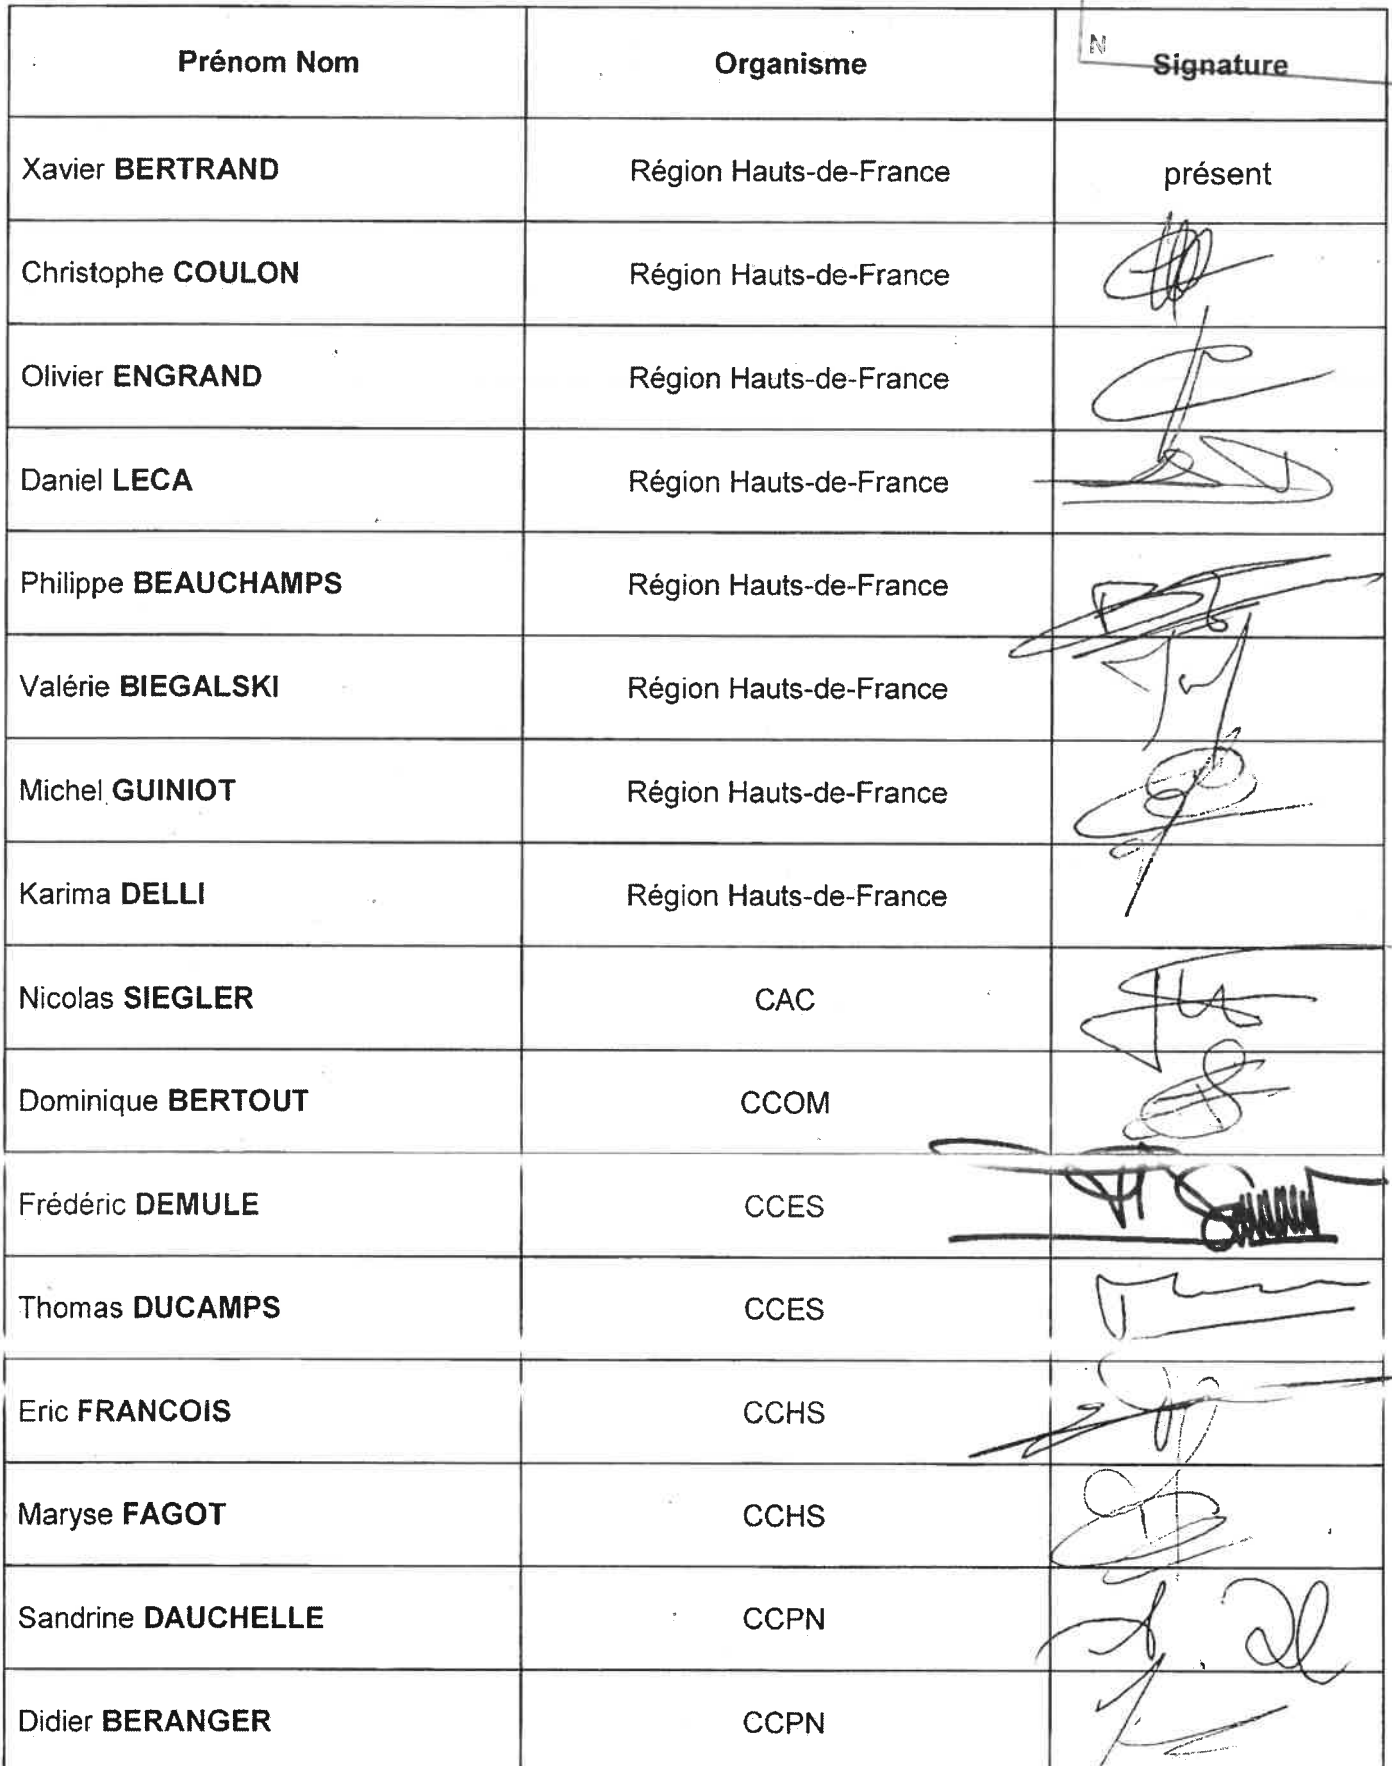 Prénom Nom Organisme Signature
N
Xavier BERTRAND Région Hauts-de-France présent
Christophe COULON Région Hauts-de-France
Olivier ENGRAND Région Hauts-de-France
Daniel LECA Région Hauts-de-France
Philippe BEAUCHAMPS Région Hauts-de-France
Valérie BIEGALSKI Région Hauts-de-France
Michel GUINIOT Région Hauts-de-France
Karima DELLI Région Hauts-de-France
Nicolas SIEGLER CAC
Dominique BERTOUT CCOM
Frédéric DEMULE CCES
Thomas DUCAMPS CCES
Eric FRANCOIS CCHS
Maryse FAGOT CCHS
Sandrine DAUCHELLE CCPN
Didier BERANGER CCPN